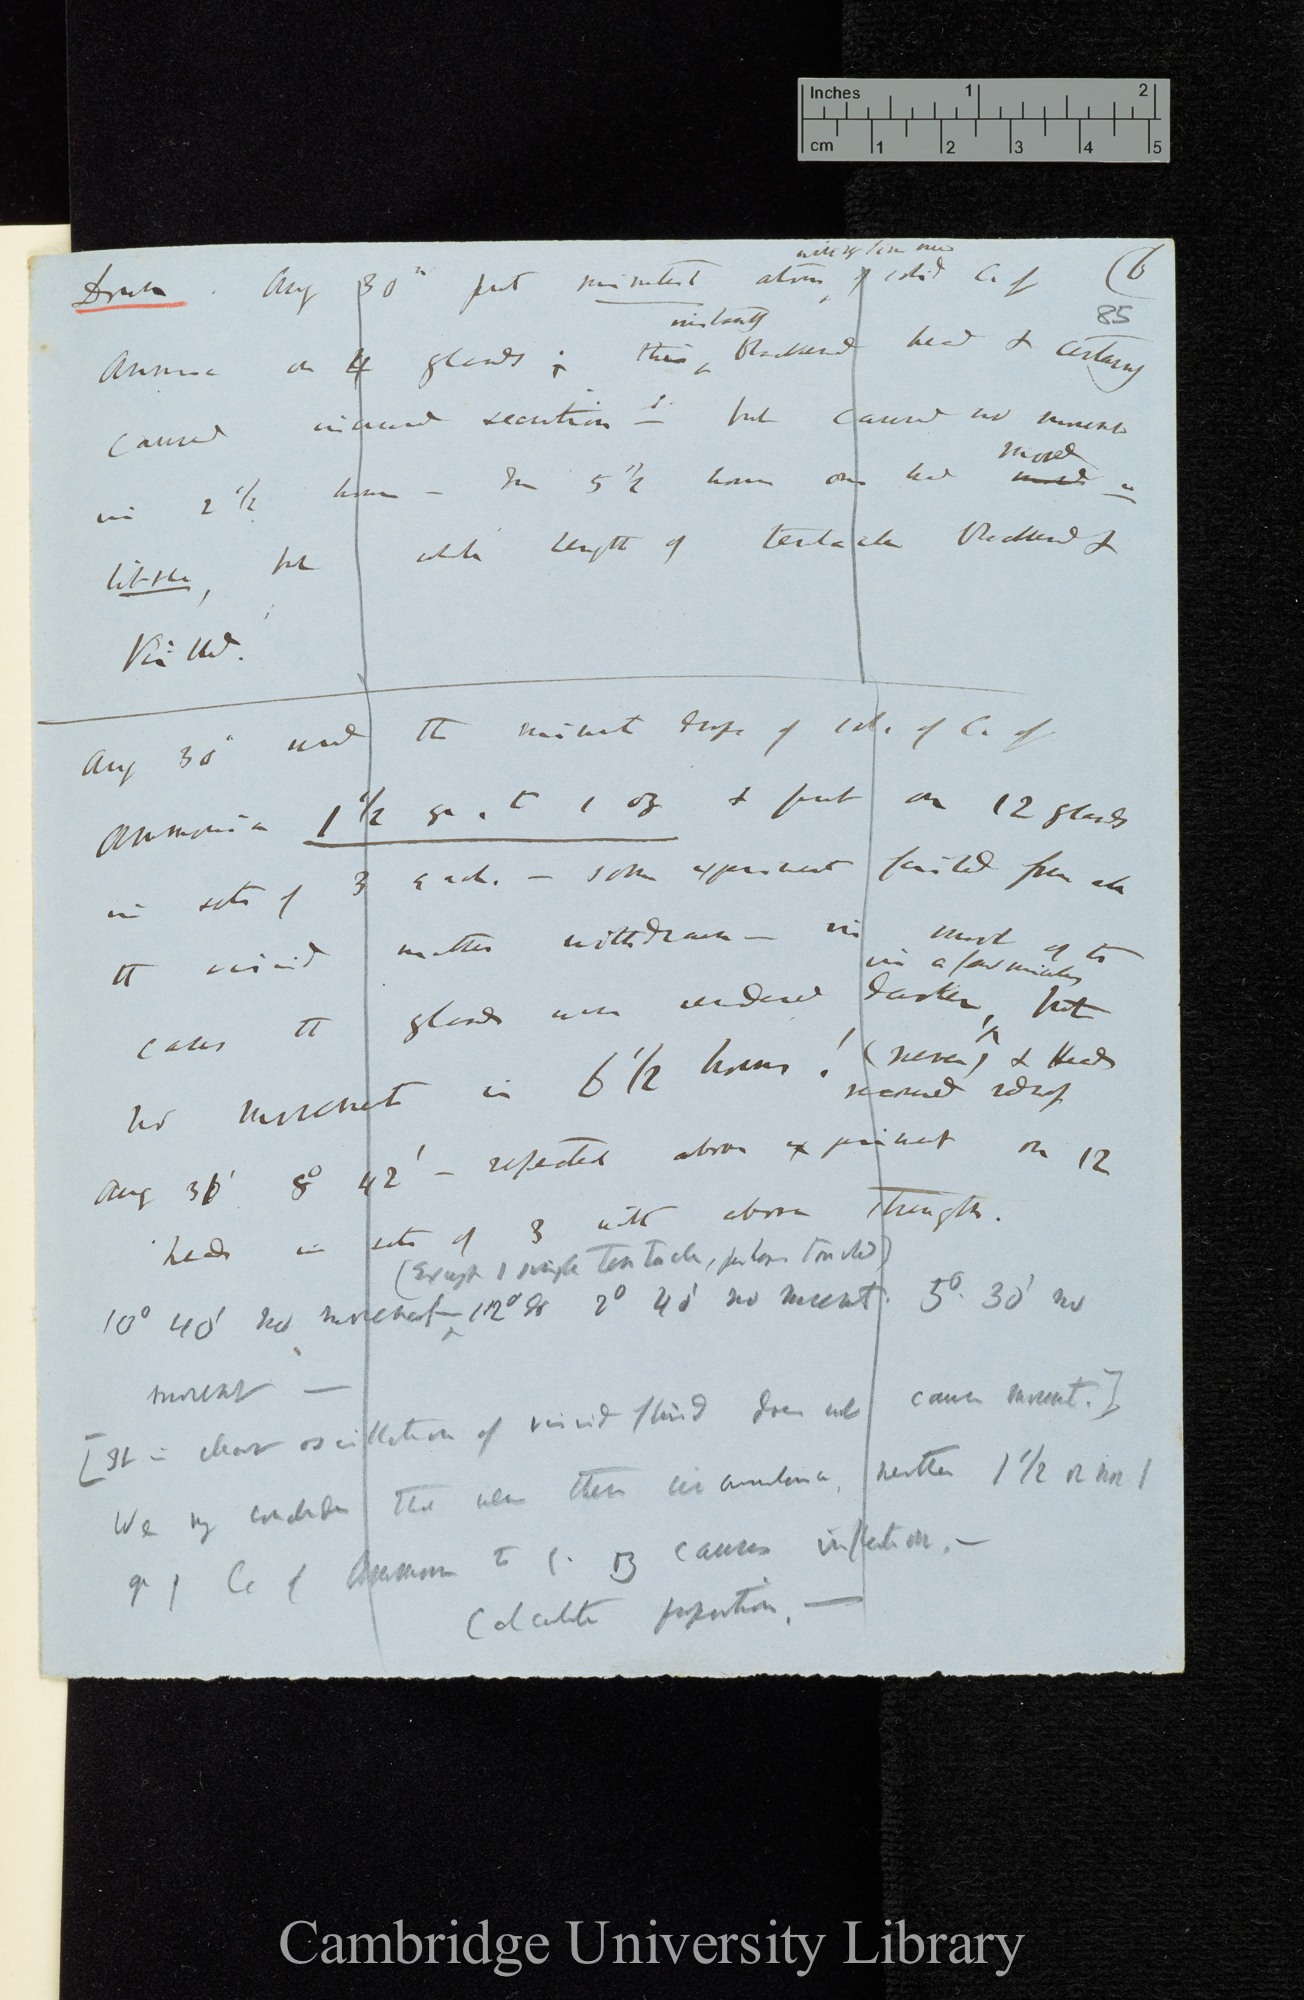 Inches 1 2
cm 1 2 3 4 5
(6
85
Drosera. Aug 30th put minutest atom of solid C. of
instantly
Ammonia on 4 glands; this blackened head & certainly
caused increased secretion — but caused no movement
moved
in 2 1/2 hours — In 5 1/2 hours one had moved a
little, but whole length of tentacle blackened &
killed!
Aug 30th used the minutest drops of sol. of C. of
Ammonia 1 1/2 gr. to 1 oz & put on 12 glands
in sets of 3 each. — some experiment failed from all
the viscid matter withdrawn — in most of the
in a few minutes
cases the glands were rendered darker, but
no movement in 6 1/2 hours! (never) & Heads
Aug 31' 8° 42' — repeated above experiment on 12
heads in sets of 3 with above strength.
(Except 1 single tentacle, perhaps touched)
10° 40' no movement — 12° 2° 40' no movement. 5° 30' no
movement —
[It is clear oscillation of viscid fluid does not cause movement.]
We may conclude that when there is ammonia, neither 1 1/2 or nor 1
gr of C. of Ammonia to 1. oz causes inflection. —
Calculate proportion. —
Cambridge University Library